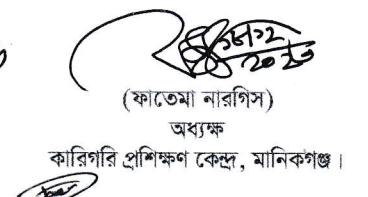 (ফাতেমা নারগিস)
অধ্যক্ষ
কারিগরি প্রশিক্ষণ কেন্দ্র, মানিকগঞ্জ।